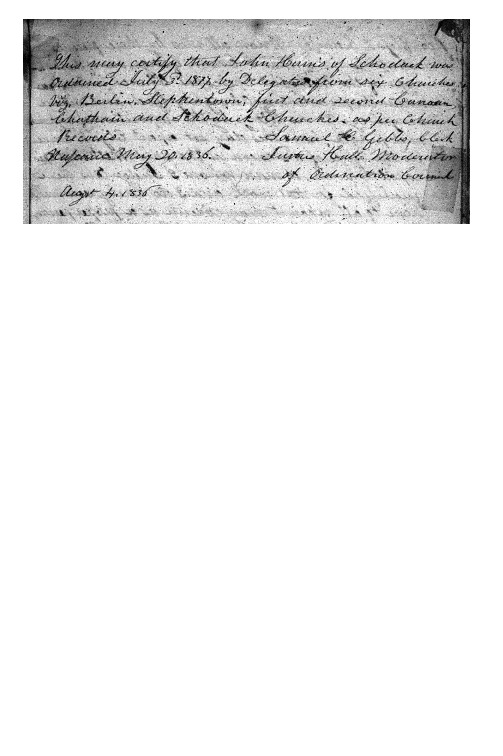 This may certify that John Harris of Schodack was
Ordained July 3. 1817 by Delegates from six Churches
viz, Berlin, Stephentown, first and second Canaan
Chatham and Schodack Churches. as per Church
Records Samuel C Gibbs, clerk
May 20. 1836. Hull Moderator
of Ordination Council
August 4. 1836